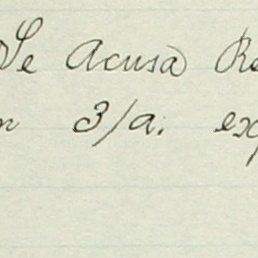 Se Acusa Re
n 3/a. exp